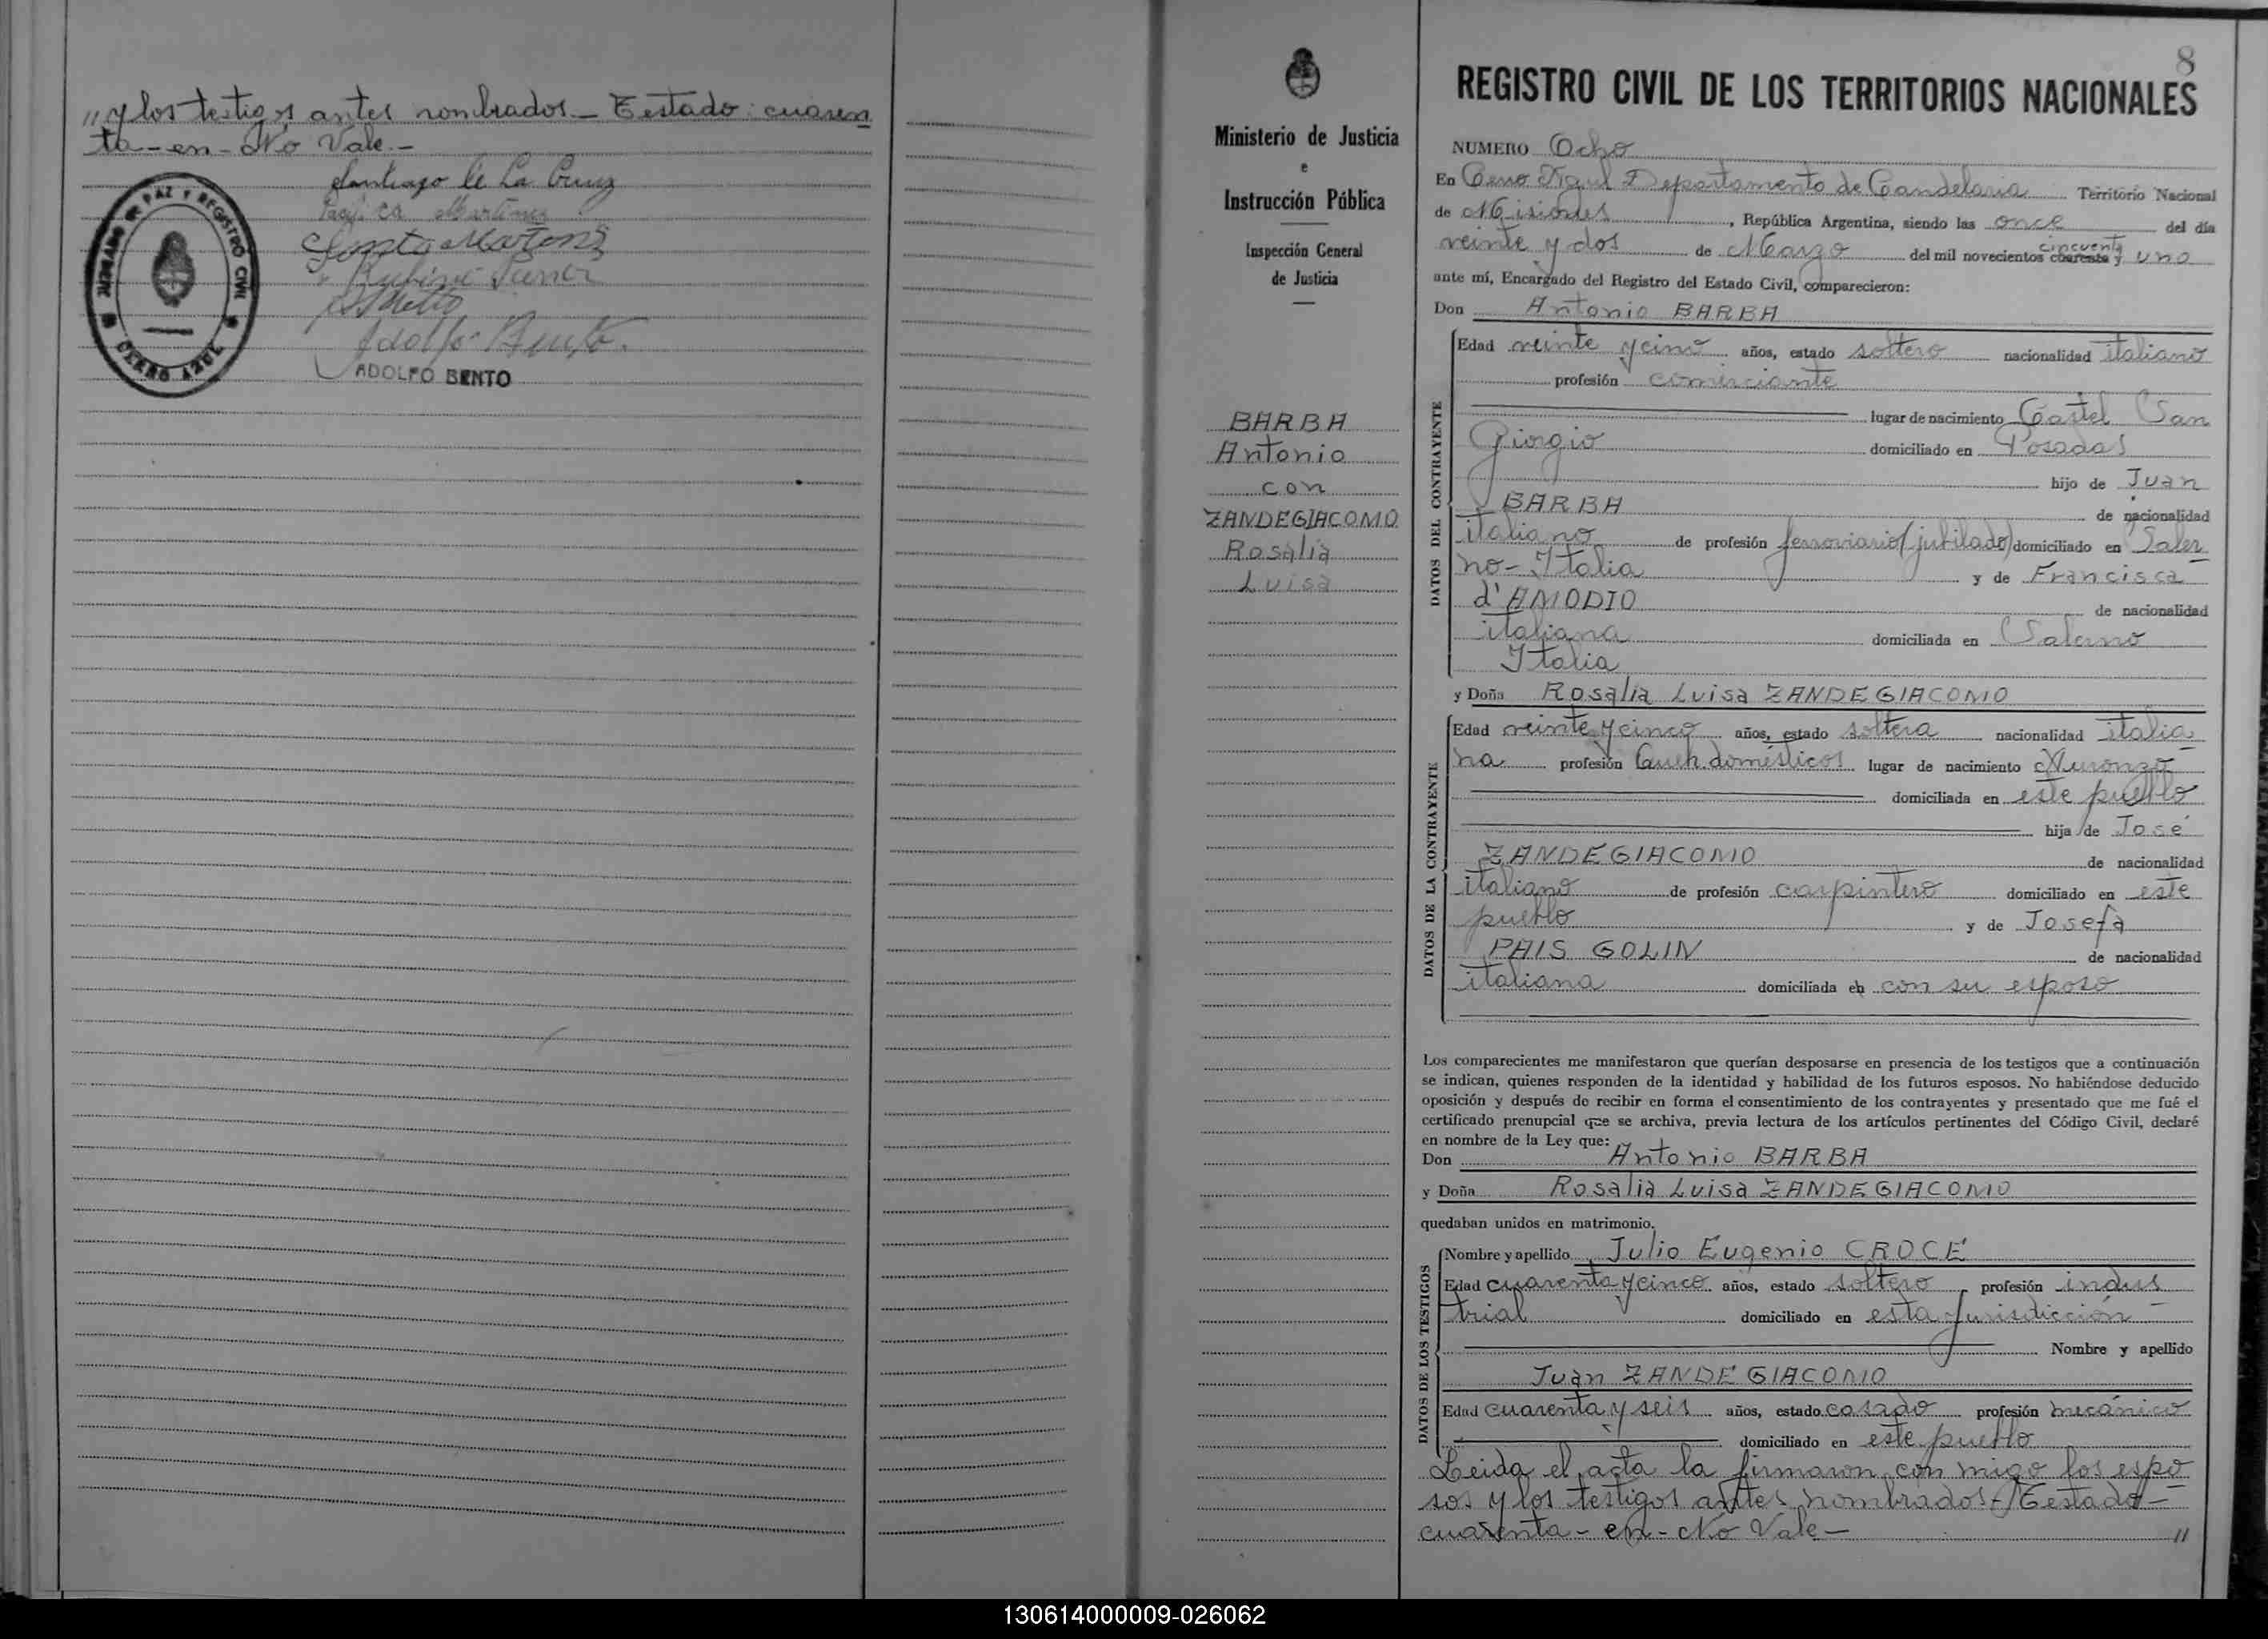 " y los testigos antes nombrados.- Testado: cuaren
ta-en-No Vale.-
Santiago de La Cruz
Martinez
Adolfo Bento
ADOLFO BENTO
JUZGADO DE PAZ Y REGISTRO CIVIL
CERRO AZUL
Ministerio de Justicia
e
Instrucción Pública
Inspección General
de Justicia
BARBA
Antonio
con
ZANDEGIACOMO
Rosalia
Luisa
8
REGISTRO CIVIL DE LOS TERRITORIOS NACIONALES
NUMERO Ocho
En Cerro Azul Departamento de Candelaria Territorio Nacional
de Misiones, República Argentina, siendo las once del día
veinte y dos de Marzo del mil novecientos cuarenta y cincuenta uno
ante mí, Encargado del Registro del Estado Civil, comparecieron:
Don Antonio BARBA
DATOS DEL CONTRAYENTE
Edad veinte y cinco años, estado soltero nacionalidad italiano
profesión comerciante
lugar de nacimiento Castel San
Giorgio domiciliado en Posadas
hijo de Juan
BARBA de nacionalidad
italiano de profesión ferroviario (jubilado) domiciliado en Saler
no-Italia y de Francisca
d'AMODIO de nacionalidad
italiana domiciliada en Salerno
Italia
y Doña Rosalia Luisa ZANDEGIACOMO
DATOS DE LA CONTRAYENTE
Edad veinte y cinco años, estado soltera nacionalidad italia
na profesión Queh. domésticos lugar de nacimiento Auronzo
domiciliada en este pueblo
hija de José
ZANDEGIACOMO de nacionalidad
italiano de profesión carpintero domiciliado en este
pueblo y de Josefa
PAIS GOLIN de nacionalidad
italiana domiciliada en con su esposo
Los comparecientes me manifestaron que querían desposarse en presencia de los testigos que a continuación
se indican, quienes responden de la identidad y habilidad de los futuros esposos. No habiéndose deducido
oposición y después de recibir en forma el consentimiento de los contrayentes y presentado que me fué el
certificado prenupcial que se archiva, previa lectura de los artículos pertinentes del Código Civil, declaré
en nombre de la Ley que:
Don Antonio BARBA
y Doña Rosalia Luisa ZANDEGIACOMO
quedaban unidos en matrimonio.
DATOS DE LOS TESTIGOS
Nombre y apellido Julio Eugenio CROCE
Edad cuarenta y cinco años, estado soltero profesión indus
trial domiciliado en esta jurisdicción
Nombre y apellido
Juan ZANDEGIACOMO
Edad cuarenta y seis años, estado casado profesión mecánico
domiciliado en este pueblo
Leida el acta la firmaron con migo los espo
sos y los testigos antes nombrados.- Testado-
cuarenta-en-No Vale- "
130614000009-026062